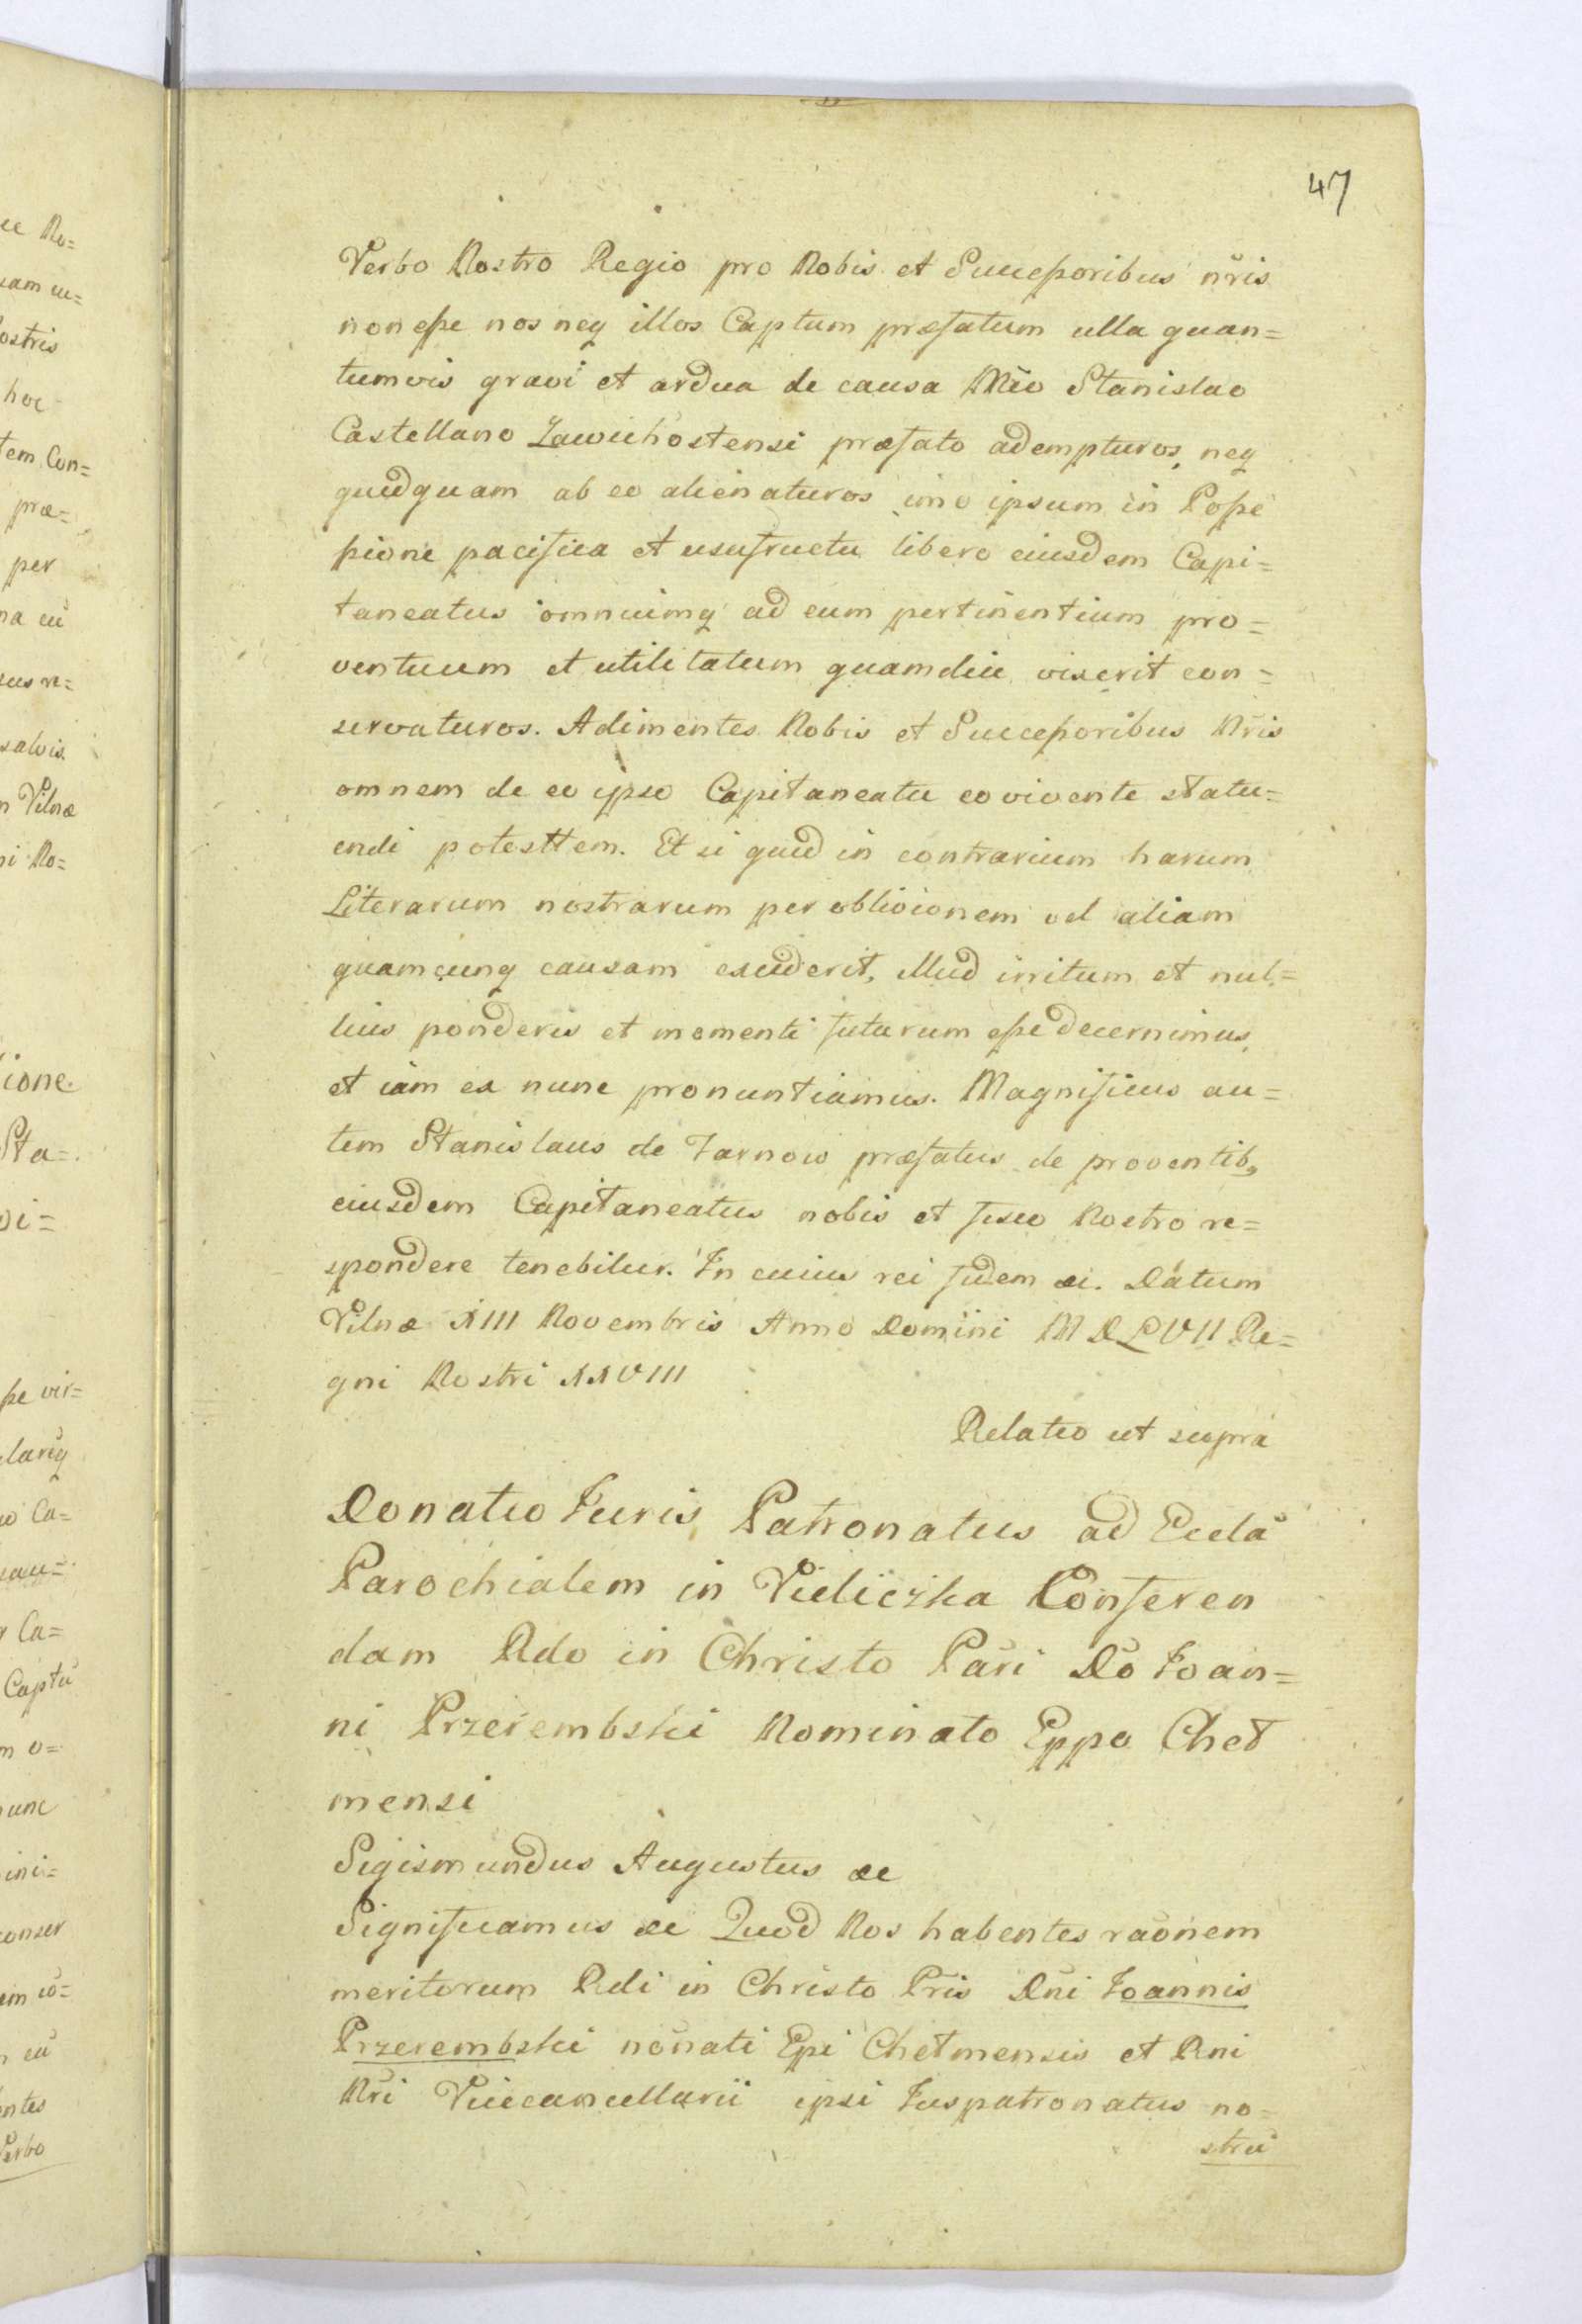 47
Verbo Nostro Regio pro Nobis et Successoribus nr̃is
non esse nos neq illos Captum præfatum ulla quan=
tumvis gravi et ardua de causa Mco Stanislao
Castellano Zawichostensi præfato adempturos, neq
quidquam ab eo alienaturos imo ipsum in Posse
ssione pacifica et usufructu libero eiusdem Capi=
taneatus omniumq ad eum pertinentium pro=
ventuum et utilitatum quamdiu vixerit con=
servaturos. Adimentes Nobis et Successoribus Nr̃is
omnem de eo ipso Capitaneatu eo vivente statu=
endi potesttem. Et si quid in contrarium harum
Literarum nostrarum per oblivionem vel aliam
quamcunq causam exciderit, illud irritum et nul=
lius ponderis et momenti futurum esse decernimus,
et iam ex nunc pronuntiamus. Magnificus au=
tem Stanislaus de Tarnow præfatus de proventib,
eiusdem Capitaneatus nobis et fisco Nostro re=
spondere tenebitur. In cuius rei fidem &c. Datum
Vilnæ XIII Novembris Anno Domini MDLVII Re=
gni Nostri XXVIII
Relatio ut supra
Donatio Iuris Patronatus ad Eccla͂
Parochialem in Vieliczka Conferen
dam Rdo in Christo Pa͂ri Do͂ Ioan=
ni Przerembski Nominato Eppo Cheł
mensi
Sigismundus Augustus &c
Significamus &c Quod Nos habentes rao͂nem
meritorum Rdi in Christo Pr̃is Dn̄i Ioannis
Przerembski no͂nati Epi Chełmensis et Rni
Nr̃i Vicecancellarii ipsi Iuspatronatus no=
stru͂